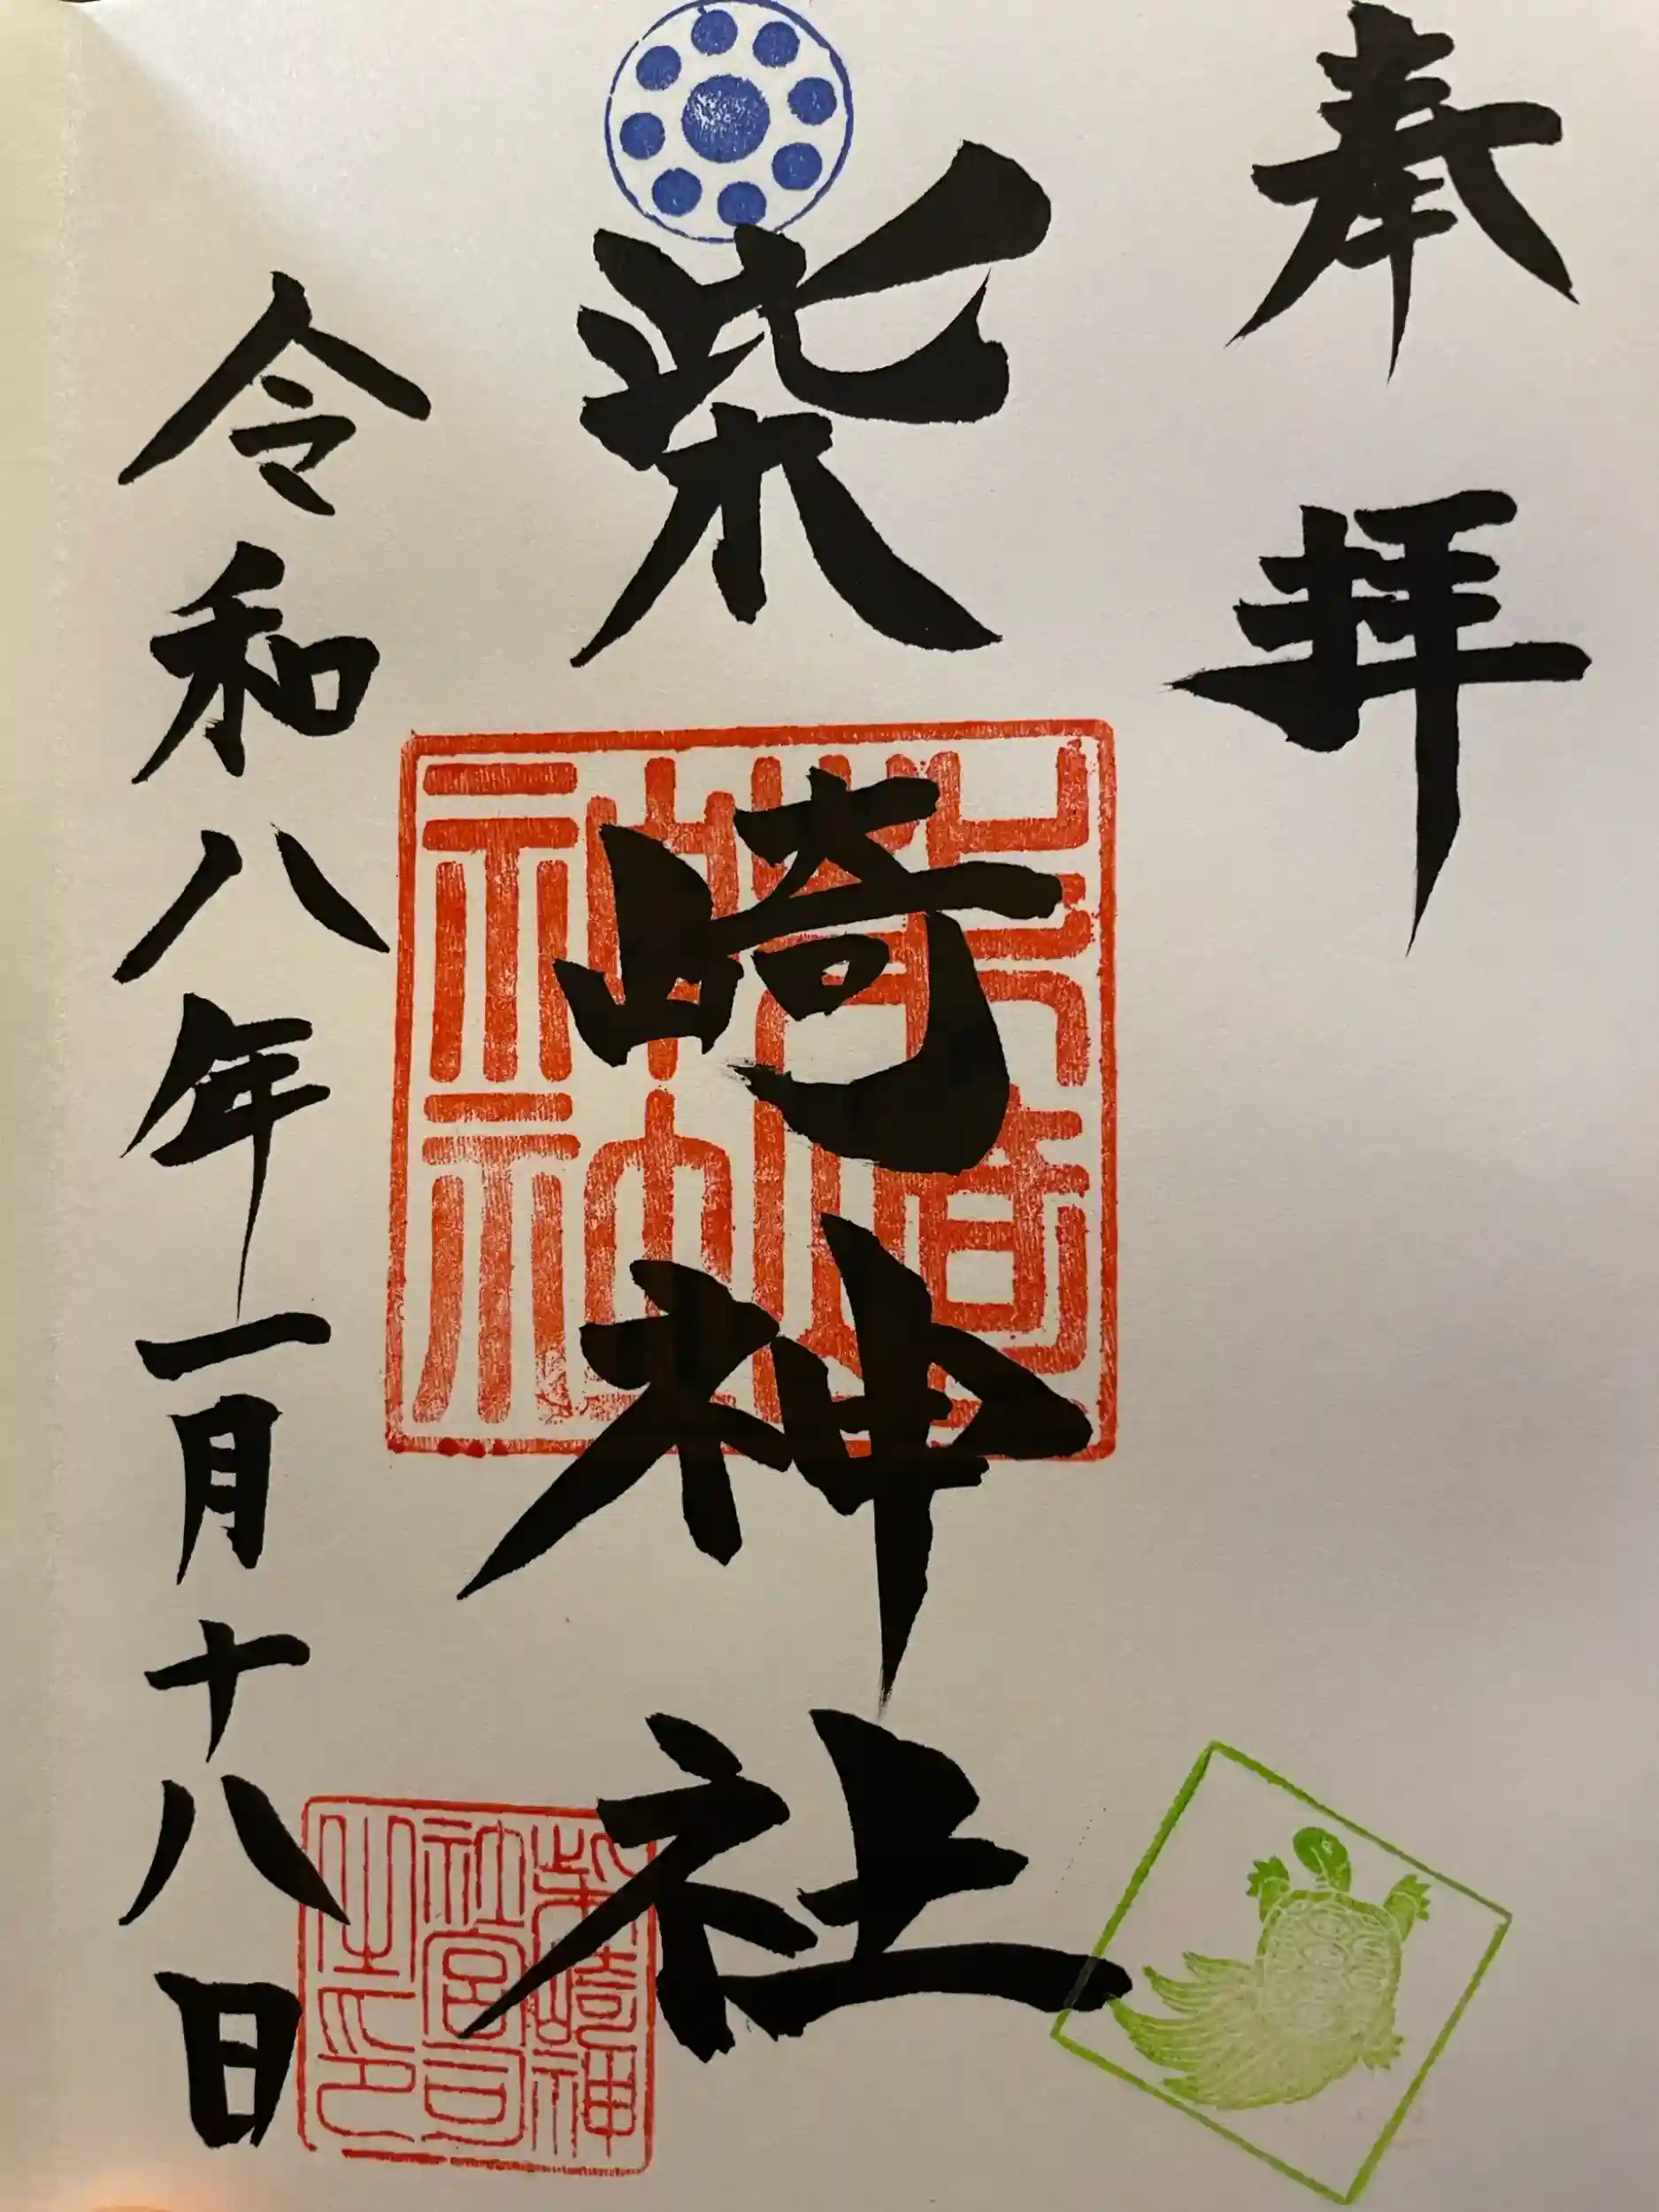 奉拝
柴崎神社
令和八年一月十八日
柴崎神社
柴崎神社宮司之印